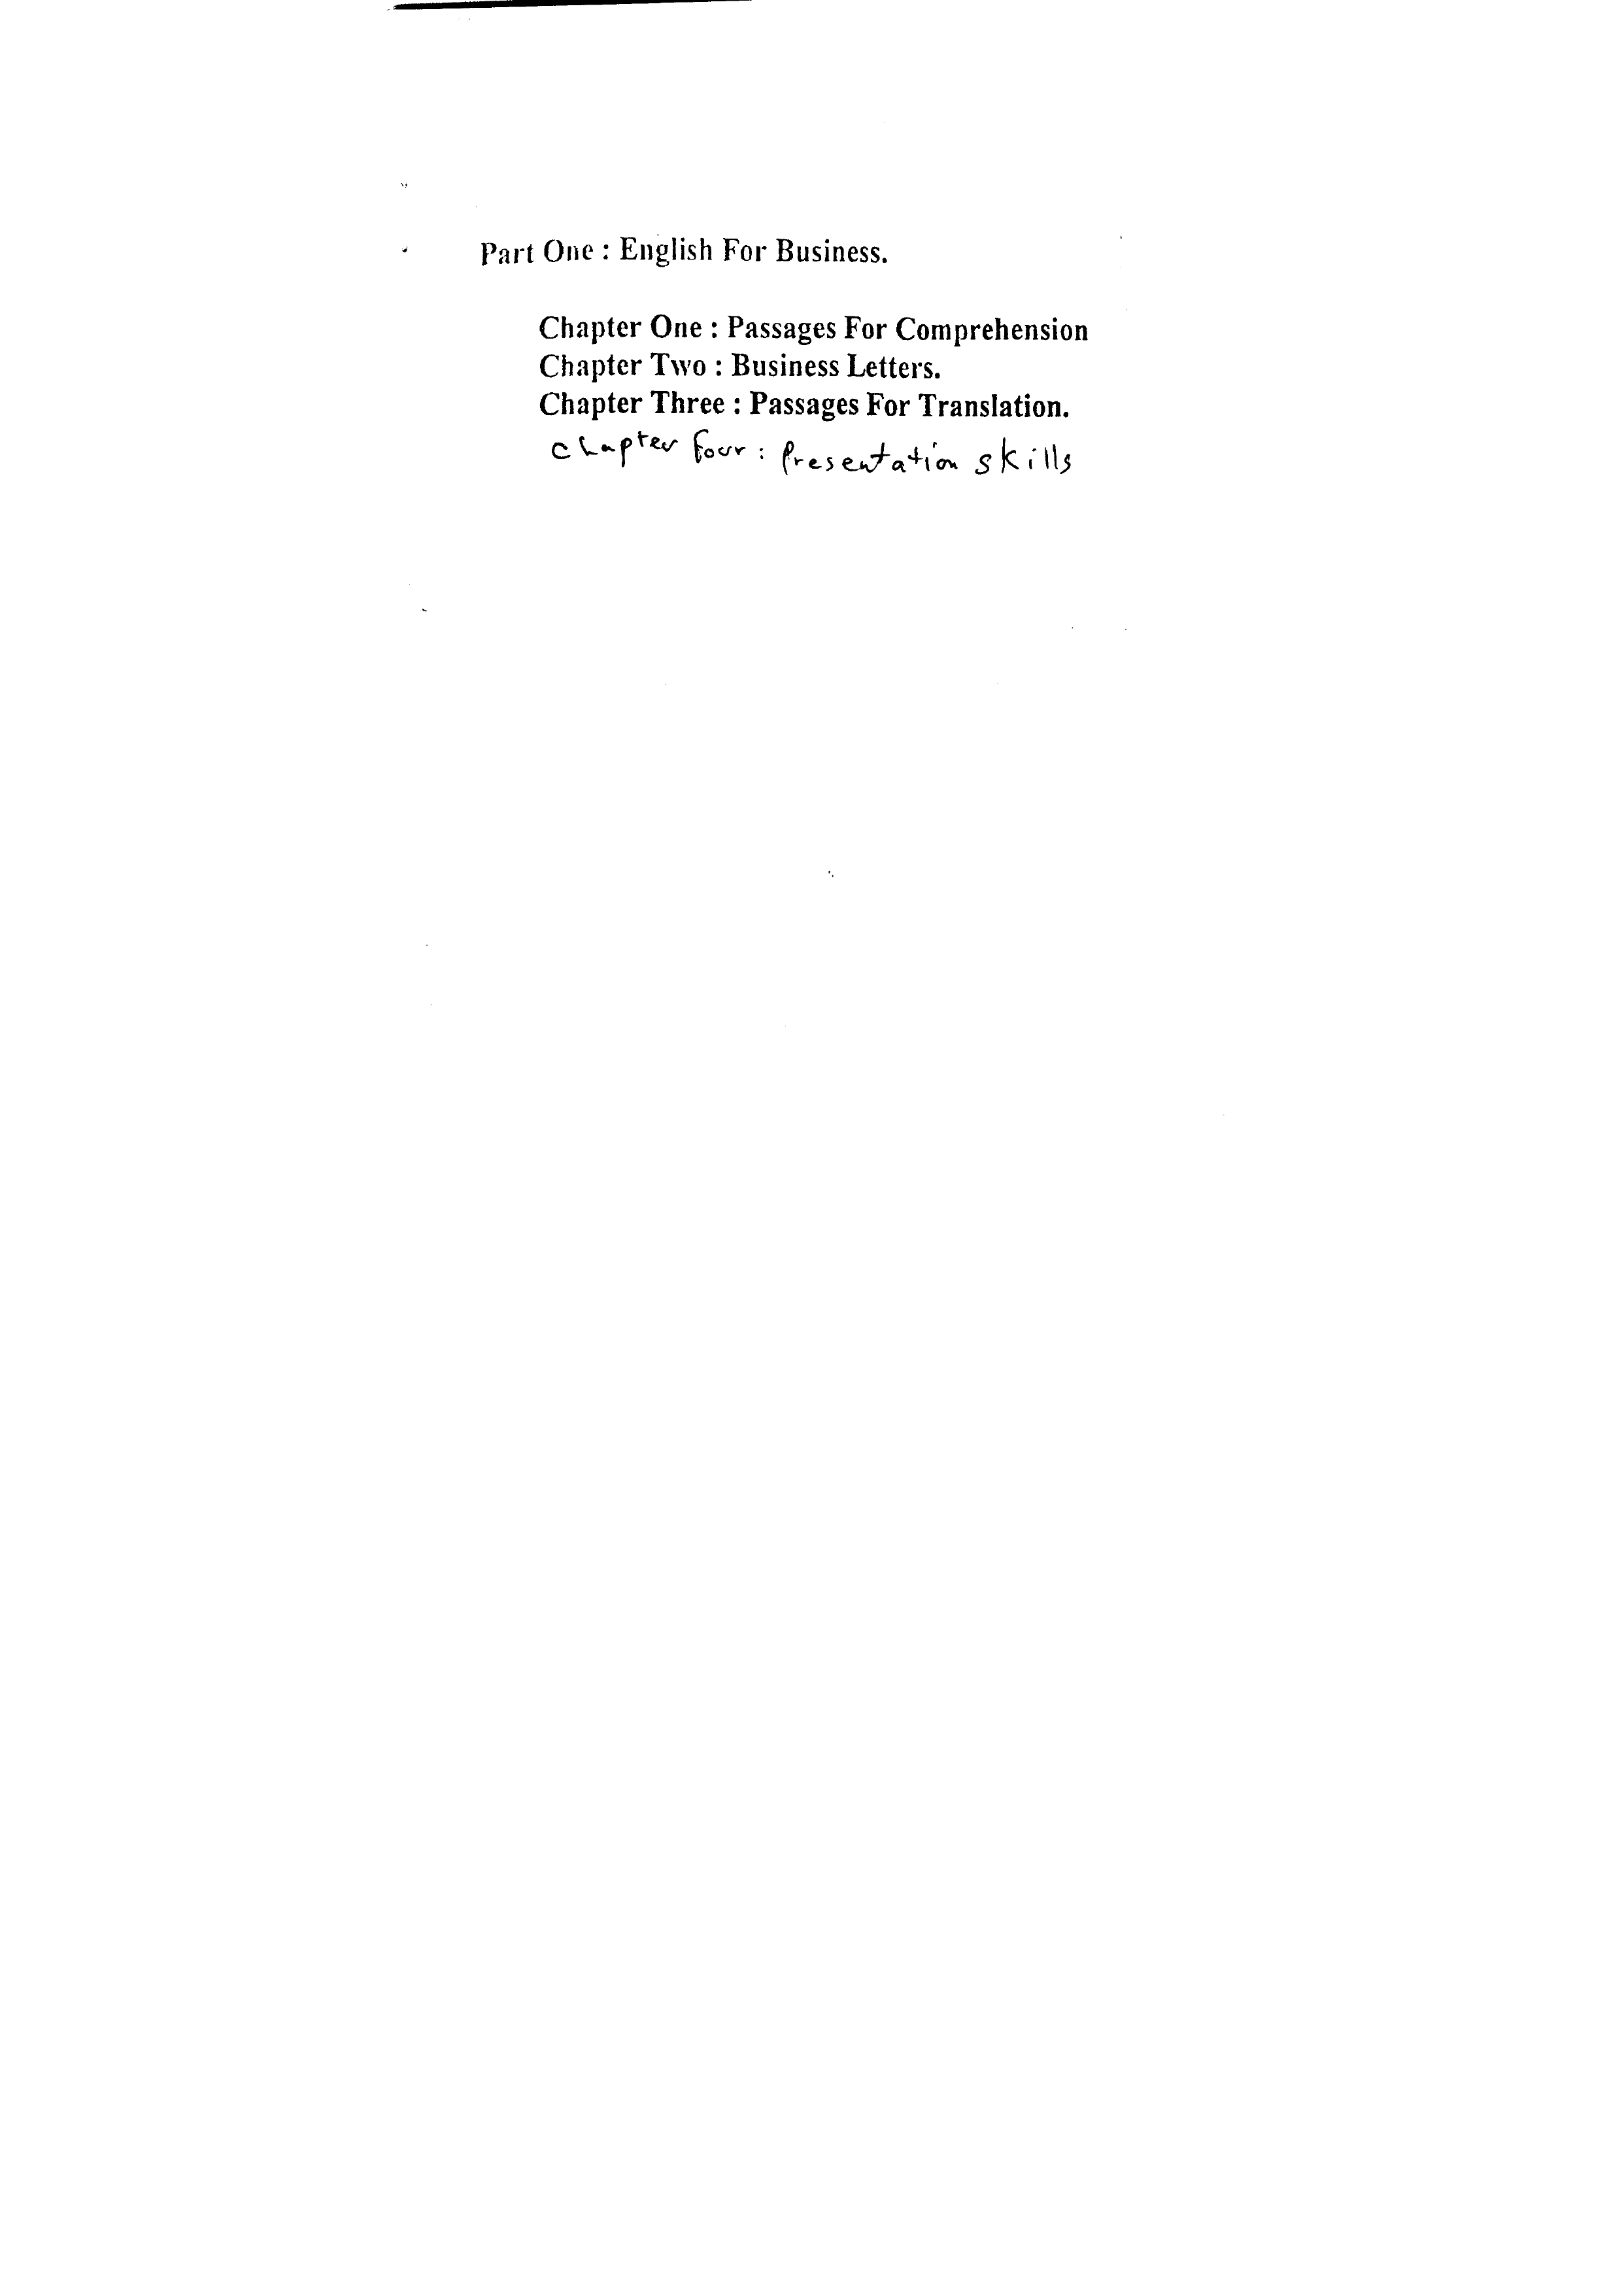 Part One : English For Business.
Chapter One : Passages For Comprehension
Chapter Two : Business Letters.
Chapter Three : Passages For Translation.
chapter four : Presentation skills